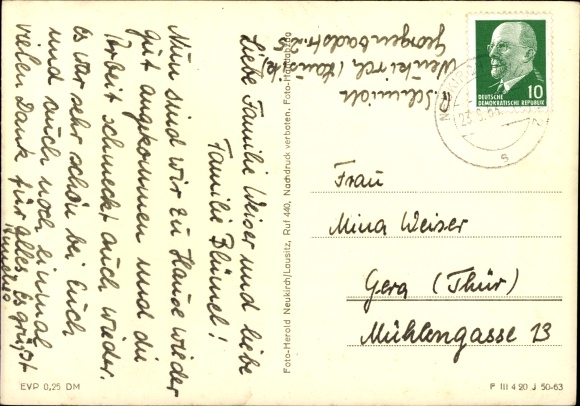 Liebe Familie Weiser und liebe
Familie Blümel!
Nun sind wir zu Hause wieder
gut angekommen und die
Arbeit schmeckt auch wieder.
Es war sehr schön bei Euch
und auch noch einmal
vielen Dank für alles. Es grüßt
Foto-Herold Neukirch/Lausitz, Ruf 440, Nachdruck verboten. Foto-Handabzug
R. Schmidt
Neukirch (Lausitz)
Georgenbadstr. 25
10
DEUTSCHE
DEMOKRATISCHE REPUBLIK
Frau
Mina Weiser
Gera (Thür)
Mühlengasse 13
EVP 0,25 DM
P III 4 20 J 50-63